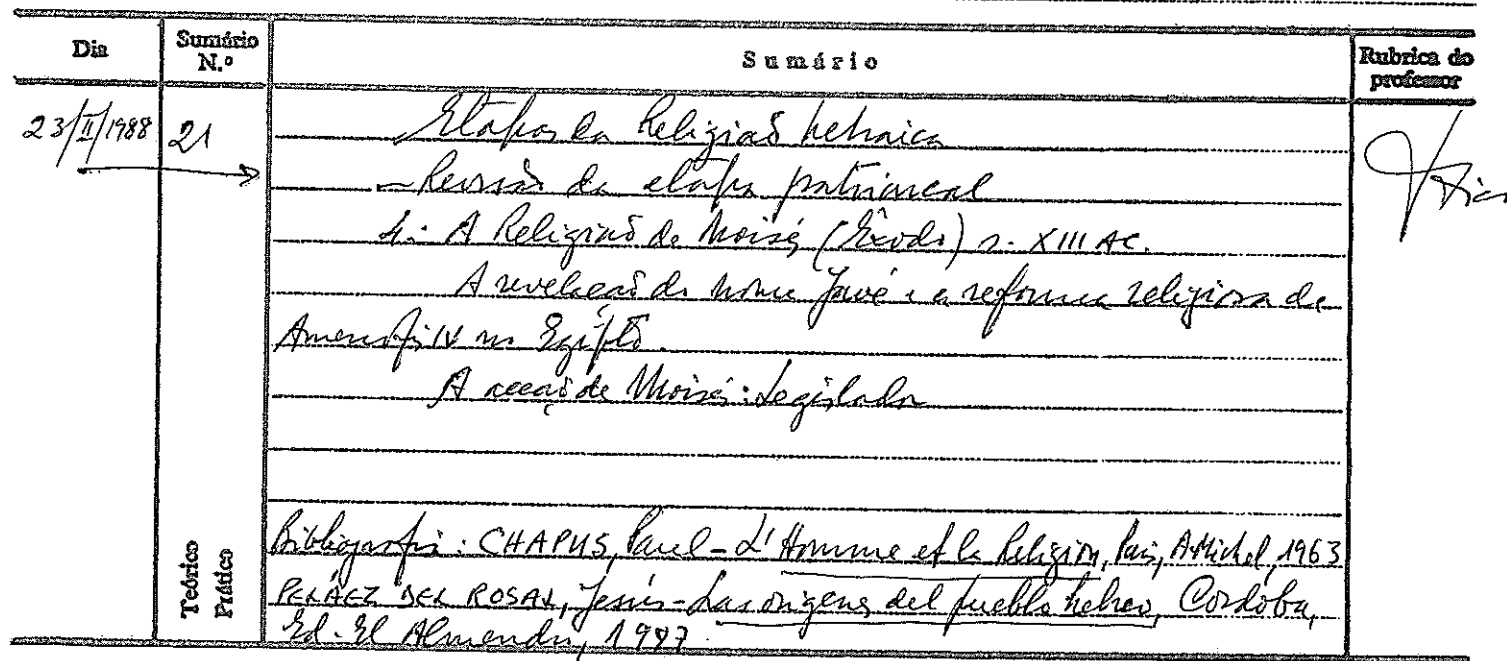 Dia Sumário N.º Sumário Rubrica do professor
23/II/1988 21 Etapas da Religião hebraica
- Revisão da etapa patriarcal
4: A Religião de Moisés (Êxodo) s. XIII AC.
A revelação do nome Javé e a reforma religiosa de
Amenofis IV no Egipto.
A acção de Moisés: Legislador
Teórico
Prático
Bibliografia: CHAPUS, Paul - L'Homme et la Religion, Paris, A. Michel, 1963
PELÁEZ DEL ROSAL, Jesús - Los orígens del pueblo hebreo, Cordoba,
Ed. El Almendro, 1987.